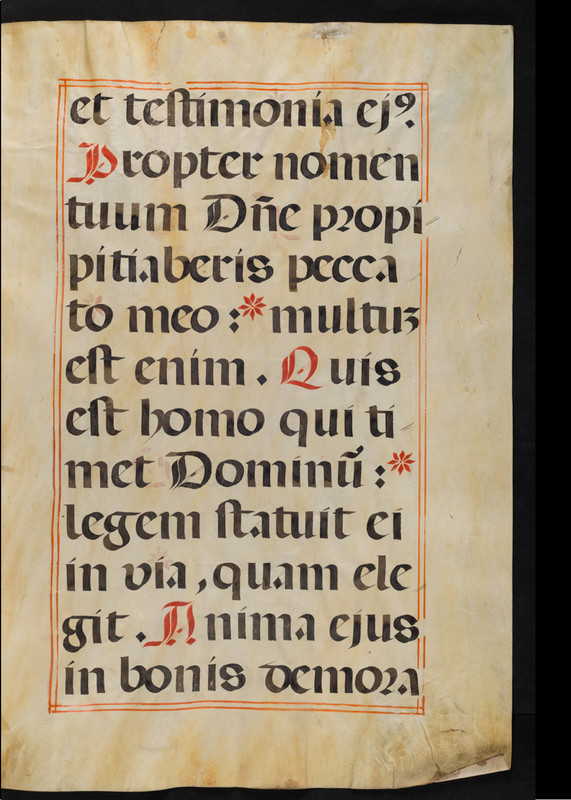 et testimonia ejꝰ.
Propter nomen
tuum Dñe propi
pitiaberis pecca
to meo :* multuꝫ
est enim . Quis
est homo qui ti
met Dominū̃ :*
legem statuit ei
in via , quam ele
git . Anima ejus
in bonis demora